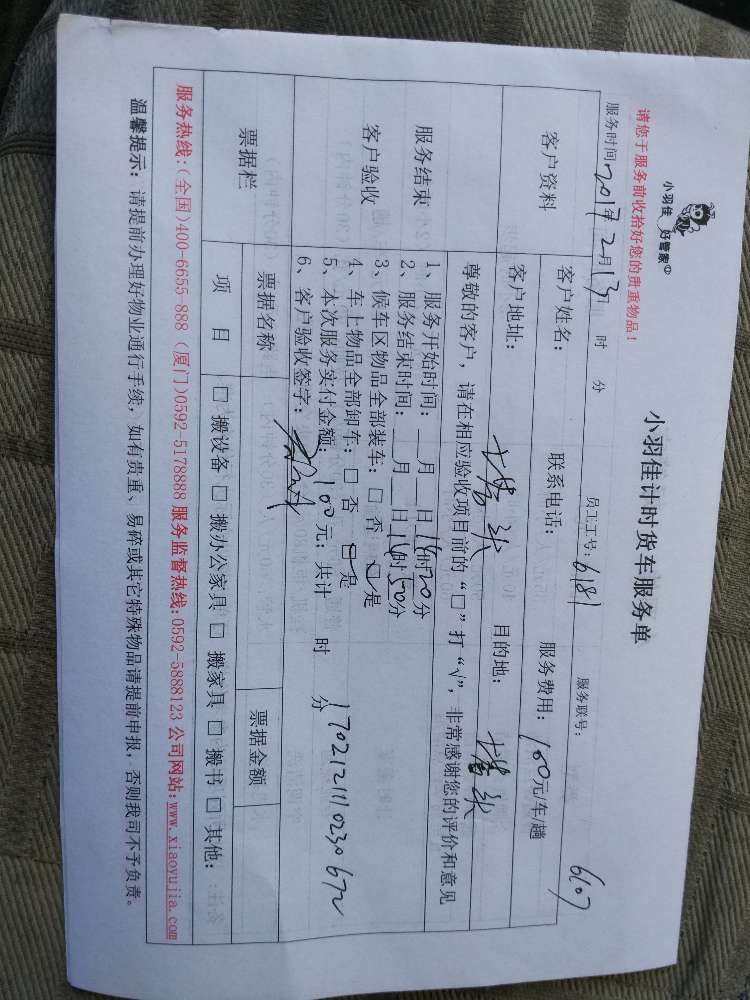 小羽佳 好管家
小羽佳计时货车服务单
请您于服务前收拾好您的贵重物品！
服务时间 2017年2月13日 时 分 员工工号：6181 服务联号： 6107
客户资料 客户姓名： 联系电话： 服务费用：100元/车/趟
客户地址： 塔头 目的地： 塔头
尊敬的客户，请在相应验收项目前的“□”打“√”，非常感谢您的评价和意见
服务结束
客户验收
1、服务开始时间：__月__日14时20分
2、服务结束时间：__月__日14时50分
3、候车区物品全部装车：□ 否 □ 是
4、车上物品全部卸车：□ 否 □ 是
5、本次服务实付金额：100元；共计 时 分
6、客户验收签字： 170212111023０672
票据栏 票据名称 票据金额
项 目 □ 搬设备 □ 搬办公家具 □ 搬家具 □ 搬书 □ 其他：
服务热线：(全国)400-6655-888 (厦门)0592-5178888 服务监督热线：0592-5888123 公司网站：www.xiaoyujia.com
温馨提示：请提前办理好物业通行手续，如有贵重、易碎或其它特殊物品请提前申报，否则我司不予负责。